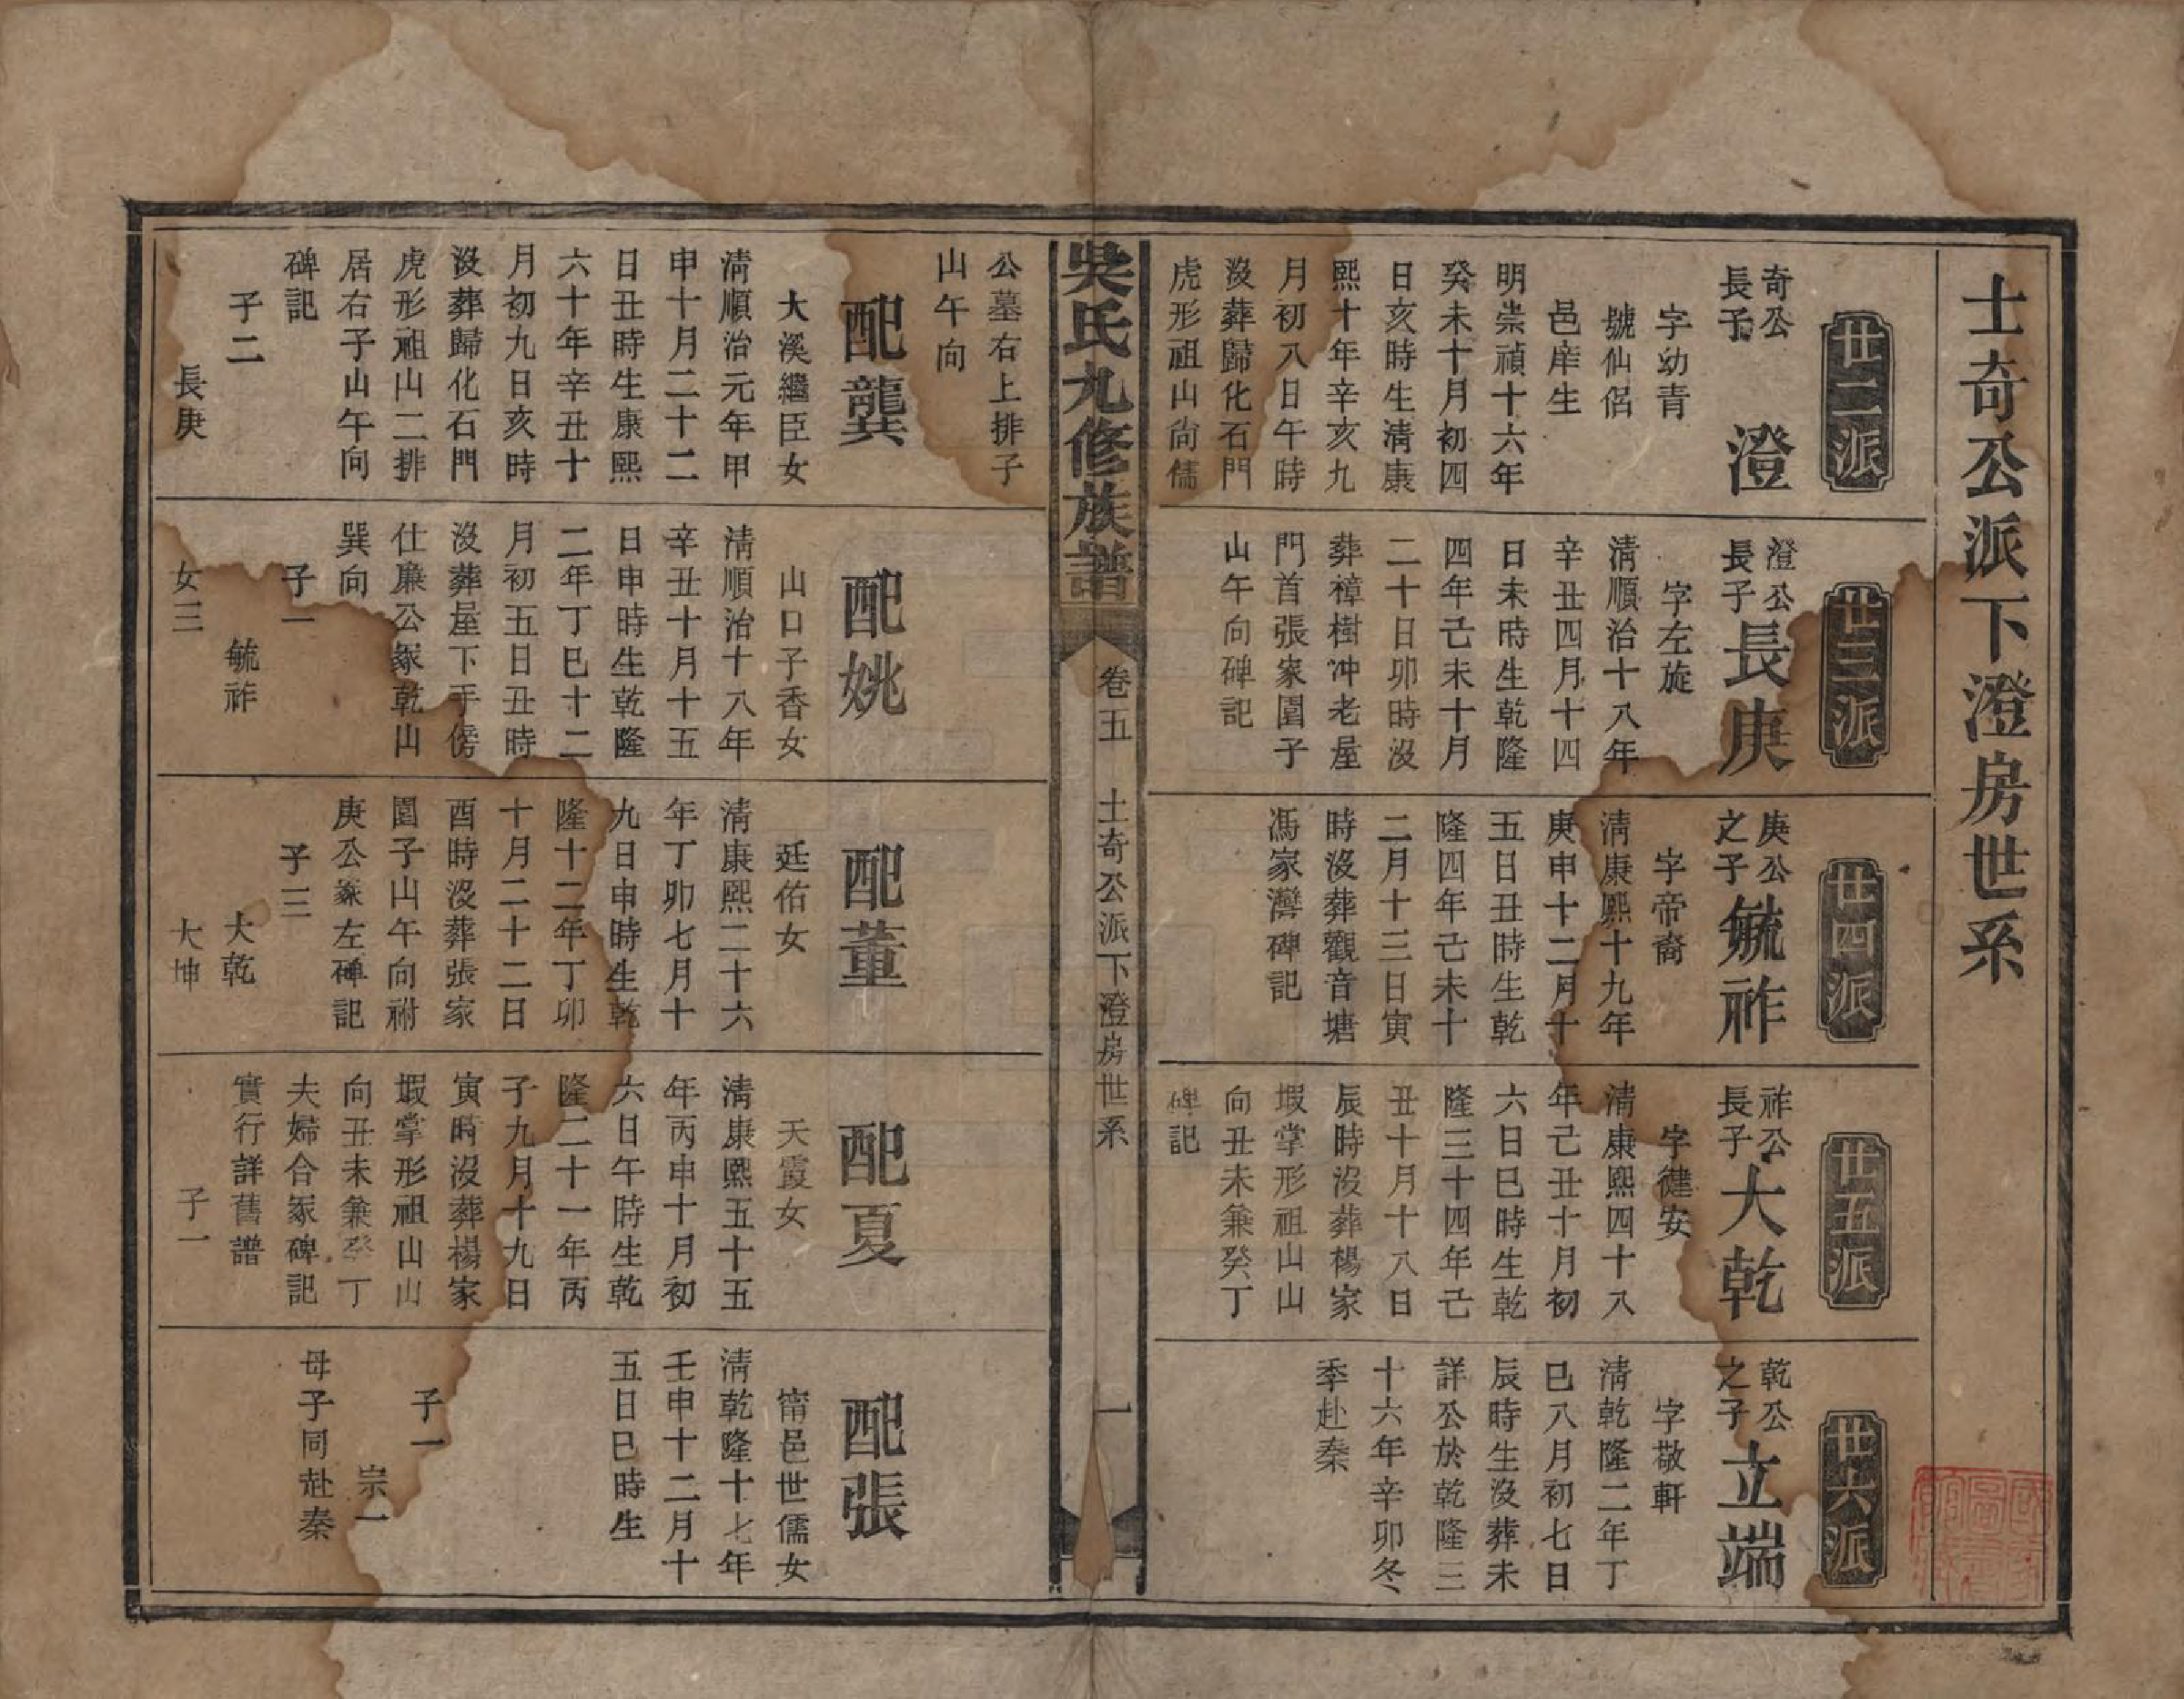 士奇公派下澄房世系
廿二派
奇公
長子
澄
字幼青
號仙侶
邑庠生
明崇禎十六年
癸未十月初四
日亥時生清康
熙十年辛亥九
月初八日午時
沒葬歸化石門
虎形祖山尙儒
公墓右上排子
山午向
配龔
大溪繼臣女
清順治元年甲
申十月二十二
日丑時生康熙
六十年辛丑十
月初九日亥時
沒葬歸化石門
虎形祖山二排
居右子山午向
碑記
子二
長庚
廿三派
澄公
長子
長庚
字左旋
清順治十八年
辛丑四月十四
日未時生乾隆
四年己未十月
二十日卯時沒
葬樟樹冲老屋
門首張家園子
山午向碑記
配姚
山口子香女
清順治十八年
辛丑十月十五
日申時生乾隆
二年丁巳十二
月初五日丑時
沒葬屋下手傍
仕廉公冢乾山
巽向
子一
毓祚
女三
廿四派
庚公
之子
毓祚
字帝裔
清康熙十九年
庚申十二月十
五日丑時生乾
隆四年己未十
二月十三日寅
時沒葬觀音塘
馮家灣碑記
配董
廷佑女
清康熙二十六
年丁卯七月十
九日申時生乾
隆十二年丁卯
十月二十二日
酉時沒葬張家
園子山午向祔
庚公冢左碑記
子三
大乾
大坤
廿五派
祚公
長子
大乾
字健安
清康熙四十八
年己丑十月初
六日巳時生乾
隆三十四年己
丑十月十八日
辰時沒葬楊家
塅掌形祖山山
向丑未兼癸丁
碑記
配夏
天霞女
清康熙五十五
年丙申十月初
六日午時生乾
隆二十一年丙
子九月十九日
寅時沒葬楊家
塅掌形祖山山
向丑未兼癸丁
夫婦合冢碑記
實行詳舊譜
子一
廿六派
乾公
之子
立端
字敬軒
清乾隆二年丁
巳八月初七日
辰時生沒葬未
詳公於乾隆三
十六年辛卯冬
季赴秦
配張
甯邑世儒女
清乾隆十七年
壬申十二月十
五日巳時生
子一
宗一
母子同赴秦
吳氏九修族譜
卷五
士奇公派下澄房世系
一